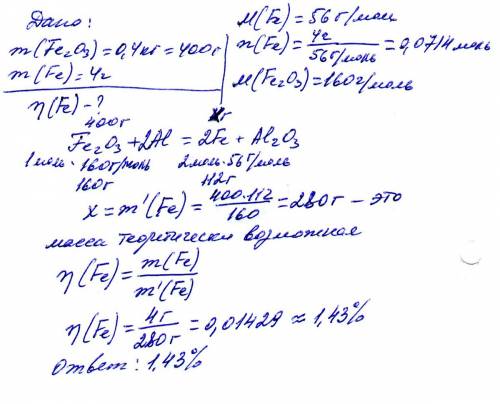 Дано:
m(Fe₂O₃)=0,4кг=400г
m(Fe)=4г
η(Fe)-?
M(Fe)=56г/моль
n(Fe)=4г/56г/моль=0,0714моль
M(Fe₂O₃)=160г/моль
400г xг
Fe₂O₃+2Al=2Fe+Al₂O₃
1моль·160г/моль 2моль·56г/моль
160г 112г
x=m'(Fe)=400·112/160=280г-это
масса теоритически возможная
η(Fe)=m(Fe)/m'(Fe)
η(Fe)=4г/280г=0,01429≈1,43%
Ответ: 1,43%